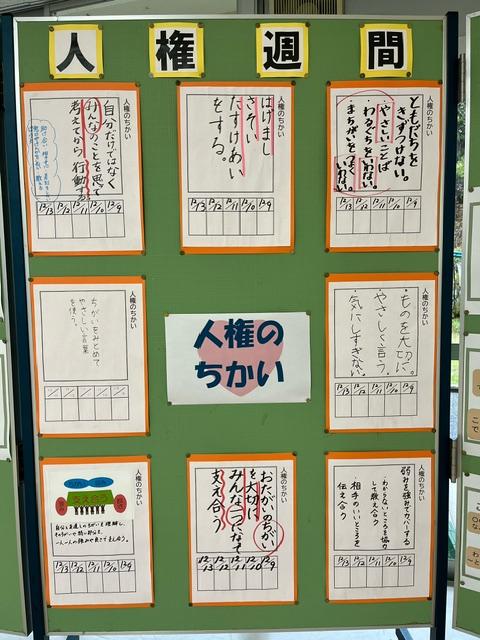 人権週間
人権のちかい
ともだちを
きずつけない。
・やさしいことば
・わるぐちをいわない。
・まちがいをつよく
いわない。
12/13 12/12 12/11 12/10 12/9
人権のちかい
はげまし
さそい
たすけあい
をする。
12/13 12/12 12/11 12/10 12/9
人権のちかい
自分だけではなく
みんなのことを思って
考えてから行動する
12/13 12/12 12/11 12/10 12/9
人権のちかい
・ものを大切に。
・やさしく言う。
・気にしすぎない。
12/13 12/12 12/11 12/10 12/9
人権の
ちかい
人権のちかい
ちがいをみとめて
やさしい言葉
を使う。
12/13 12/12 12/11 12/10 12/9
人権のちかい
弱みを強みでカバーする
わからないところを協力
して教え合う
相手のいいところを
伝え合う
12/13 12/12 12/11 12/10 12/9
人権のちかい
おたがいのちがい
を大切に
みんなでつながって
支え合う
12/13 12/12 12/11 12/10 12/9
人権のちかい
支え合う
12/13 12/12 12/11 12/10 12/9